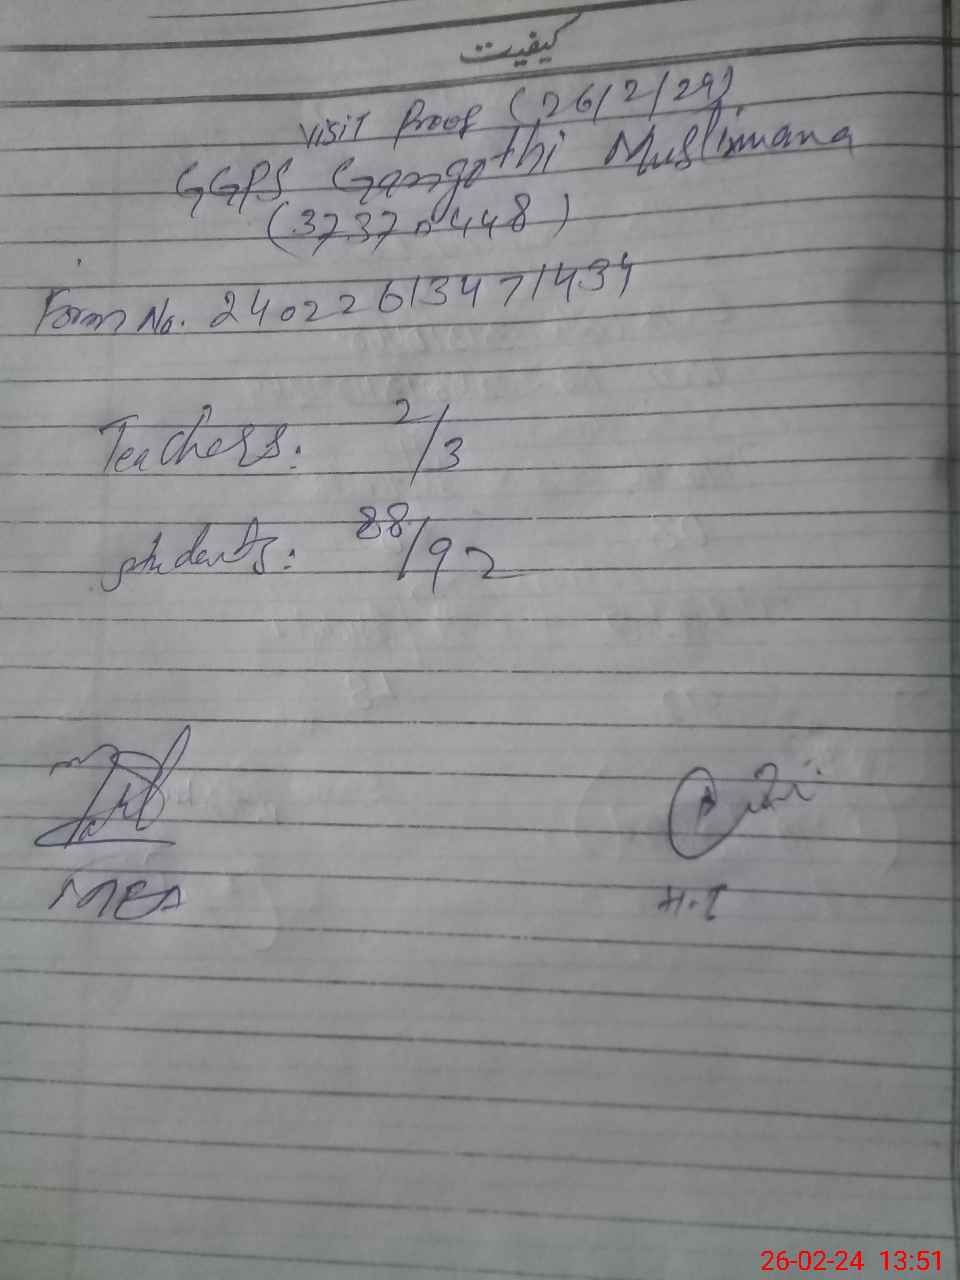 کیفیت
Visit Proof (26/2/24)
GGPS Gangothi Muslimana
(37370448)
Form No. 24022613471434
Teachers: 2/3
students: 88/92
MEA
H.T
26-02-24 13:51